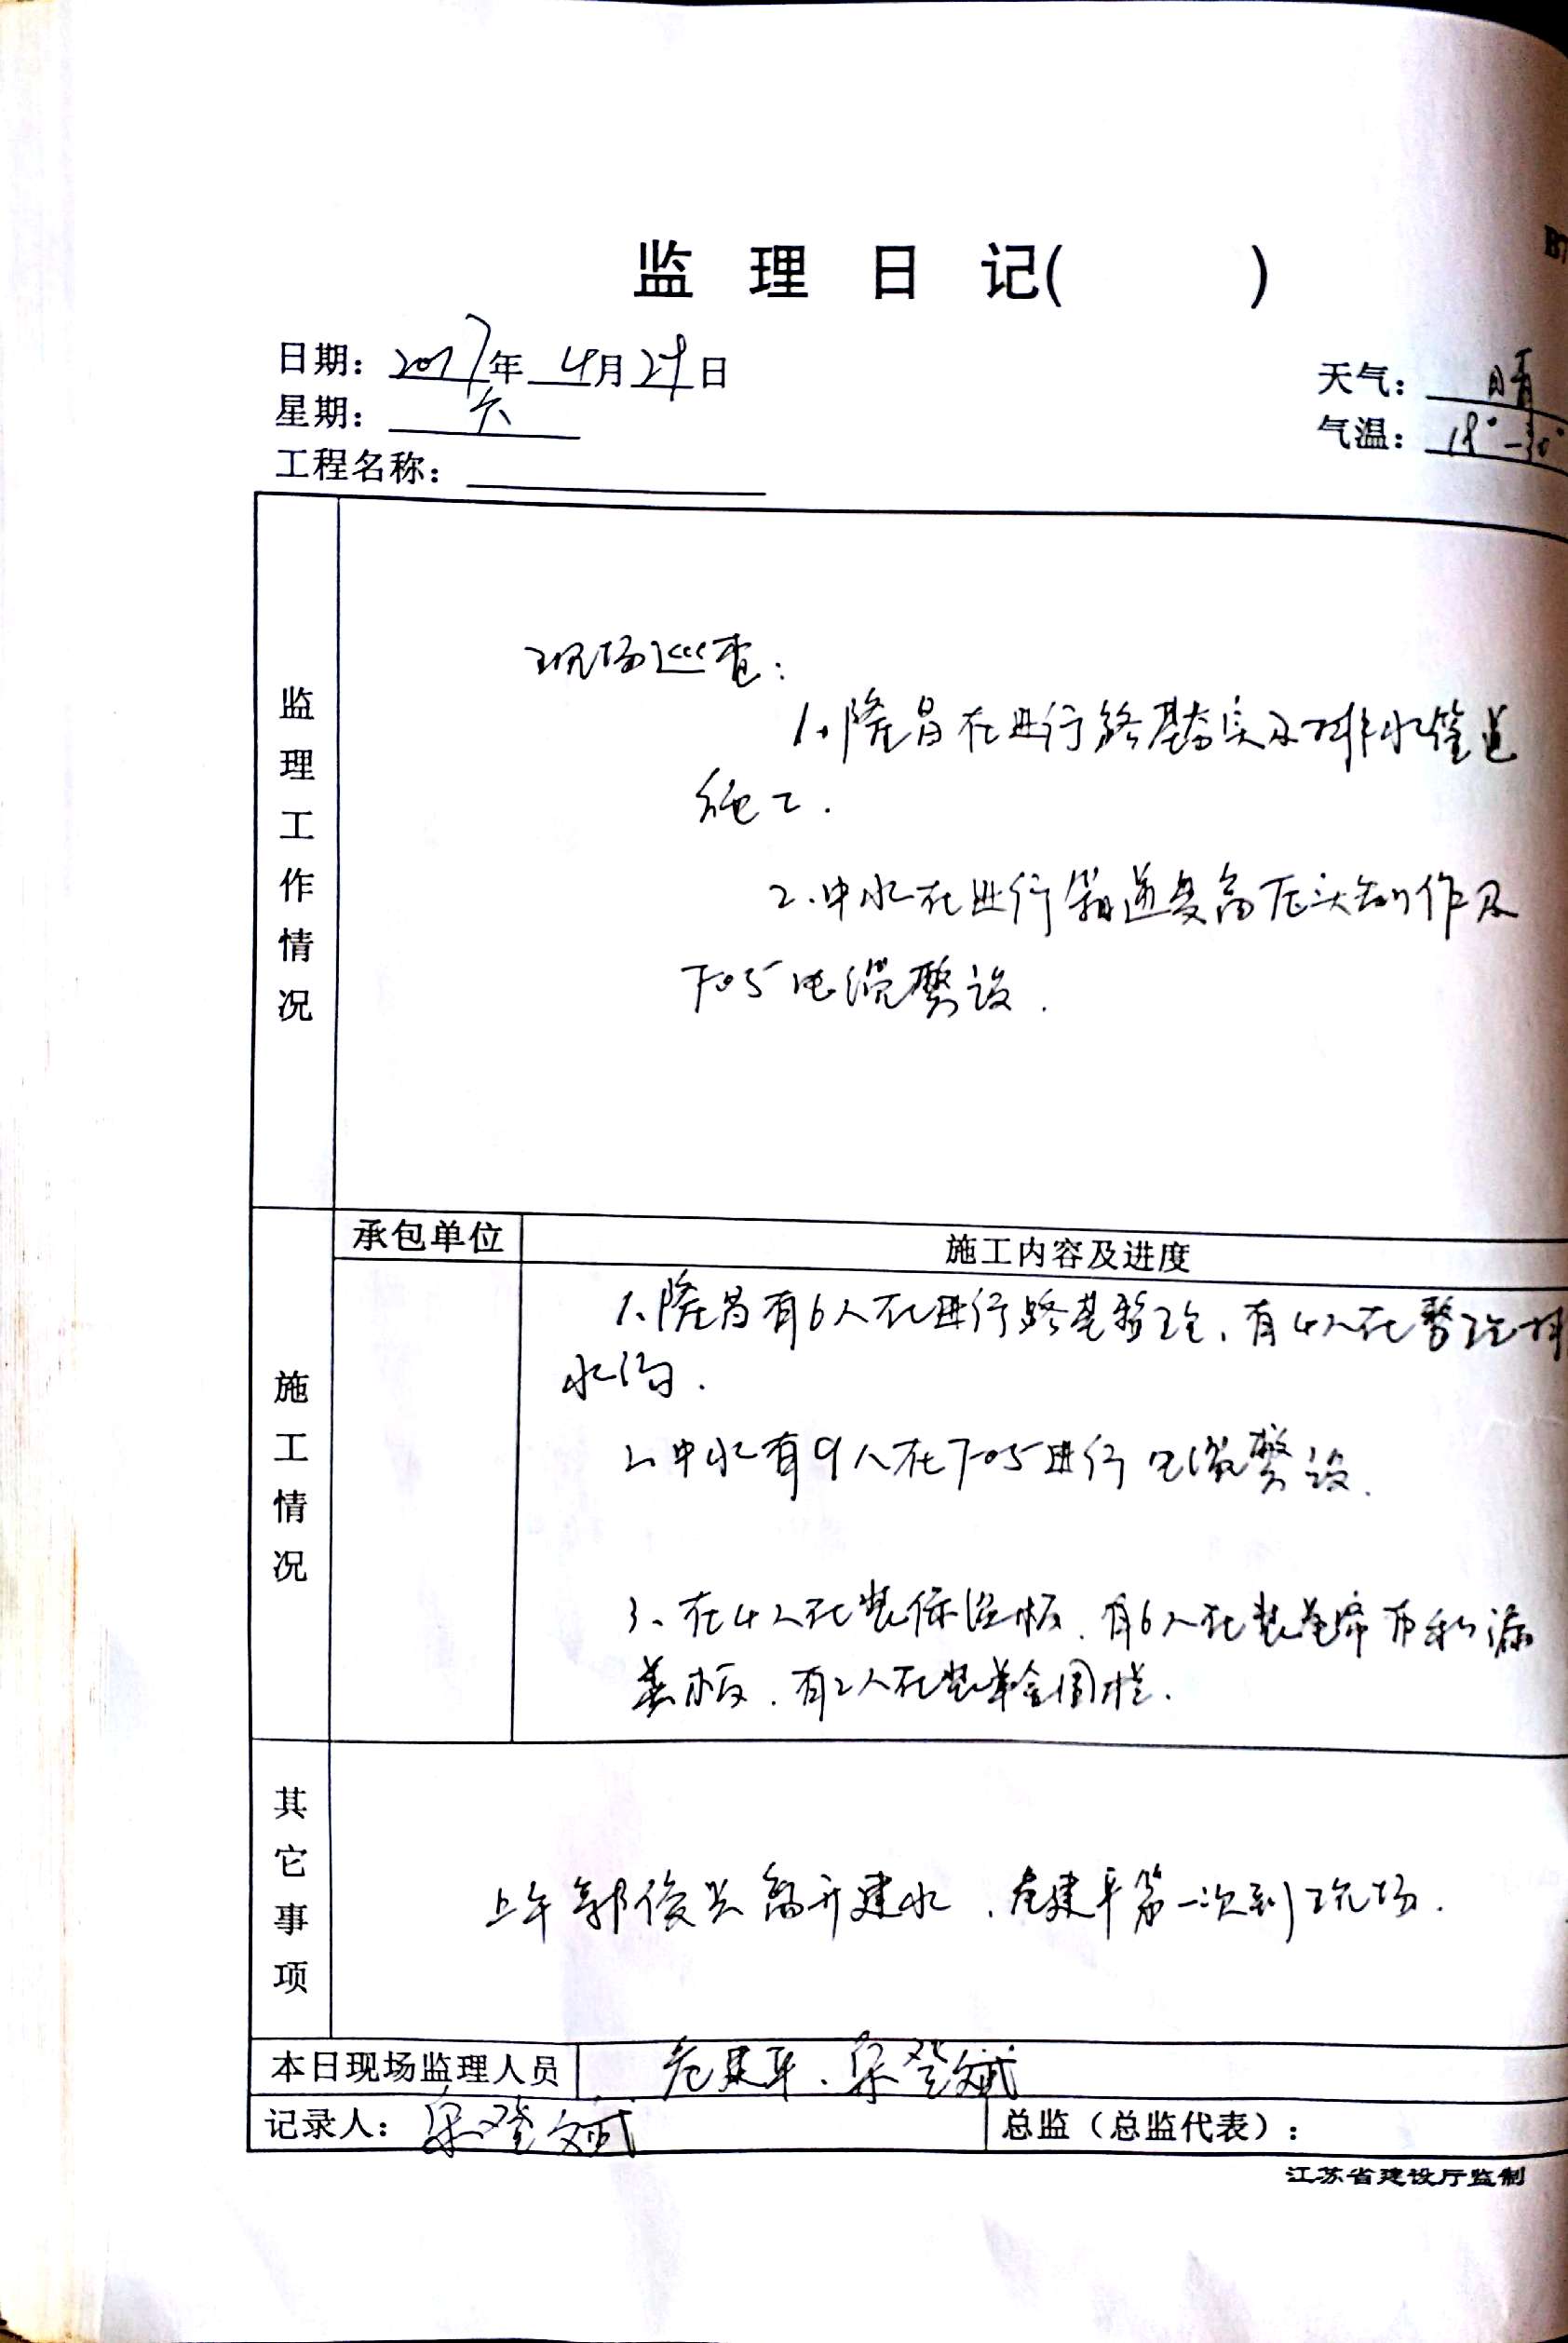 B7
监 理 日 记( )
日期：2017年 4月29日
天气：晴
星期：六
气温：18°-30°
工程名称：
监理工作情况
现场巡查：
1、隆昌在进行路基夯实及排水管道
施工.
2、中水在进行箱逆变高压头制作及
705电缆敷设.
承包单位
施工内容及进度
施工情况
1、隆昌有6人在进行路基整理，有4人在整理排
水沟.
2、中水有9人在705进行电缆敷设.
3、在4人在装保温板，有6人在装卷帘布和漆
粪板，有2人在装羊舍围栏.
其它事项
上午郭俊兴离开建水，危建平第一次到现场.
本日现场监理人员
危建平、梁登斌
记录人：梁登斌
总监（总监代表）：
江苏省建设厅监制